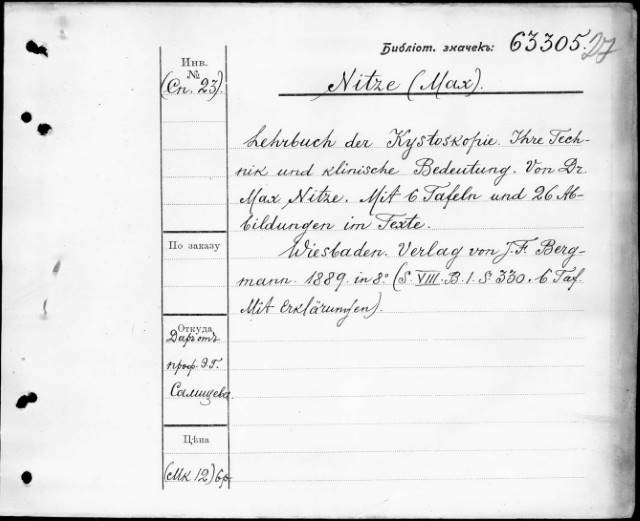 Библіот. значекъ: 63305. 27
Инв.
№
(Сп. 23).
Nitze (Max).
Lehrbuch der Kystoskopie. Ihre Tech-
nik und klinische Bedeutung. Von Dr.
Max Nitze. Mit 6 Tafeln und 26 Ab-
bildungen im Texte.
Wiesbaden. Verlag von J. F. Berg-
mann. 1889. in 8° (S. VIII. B. 1. S 330. 6 Taf.
Mit Erklärungen).
По заказу
Откуда
Даръ отъ
проф. Э Г.
Салищева.
Цѣна
(Мк 12) 6 р.